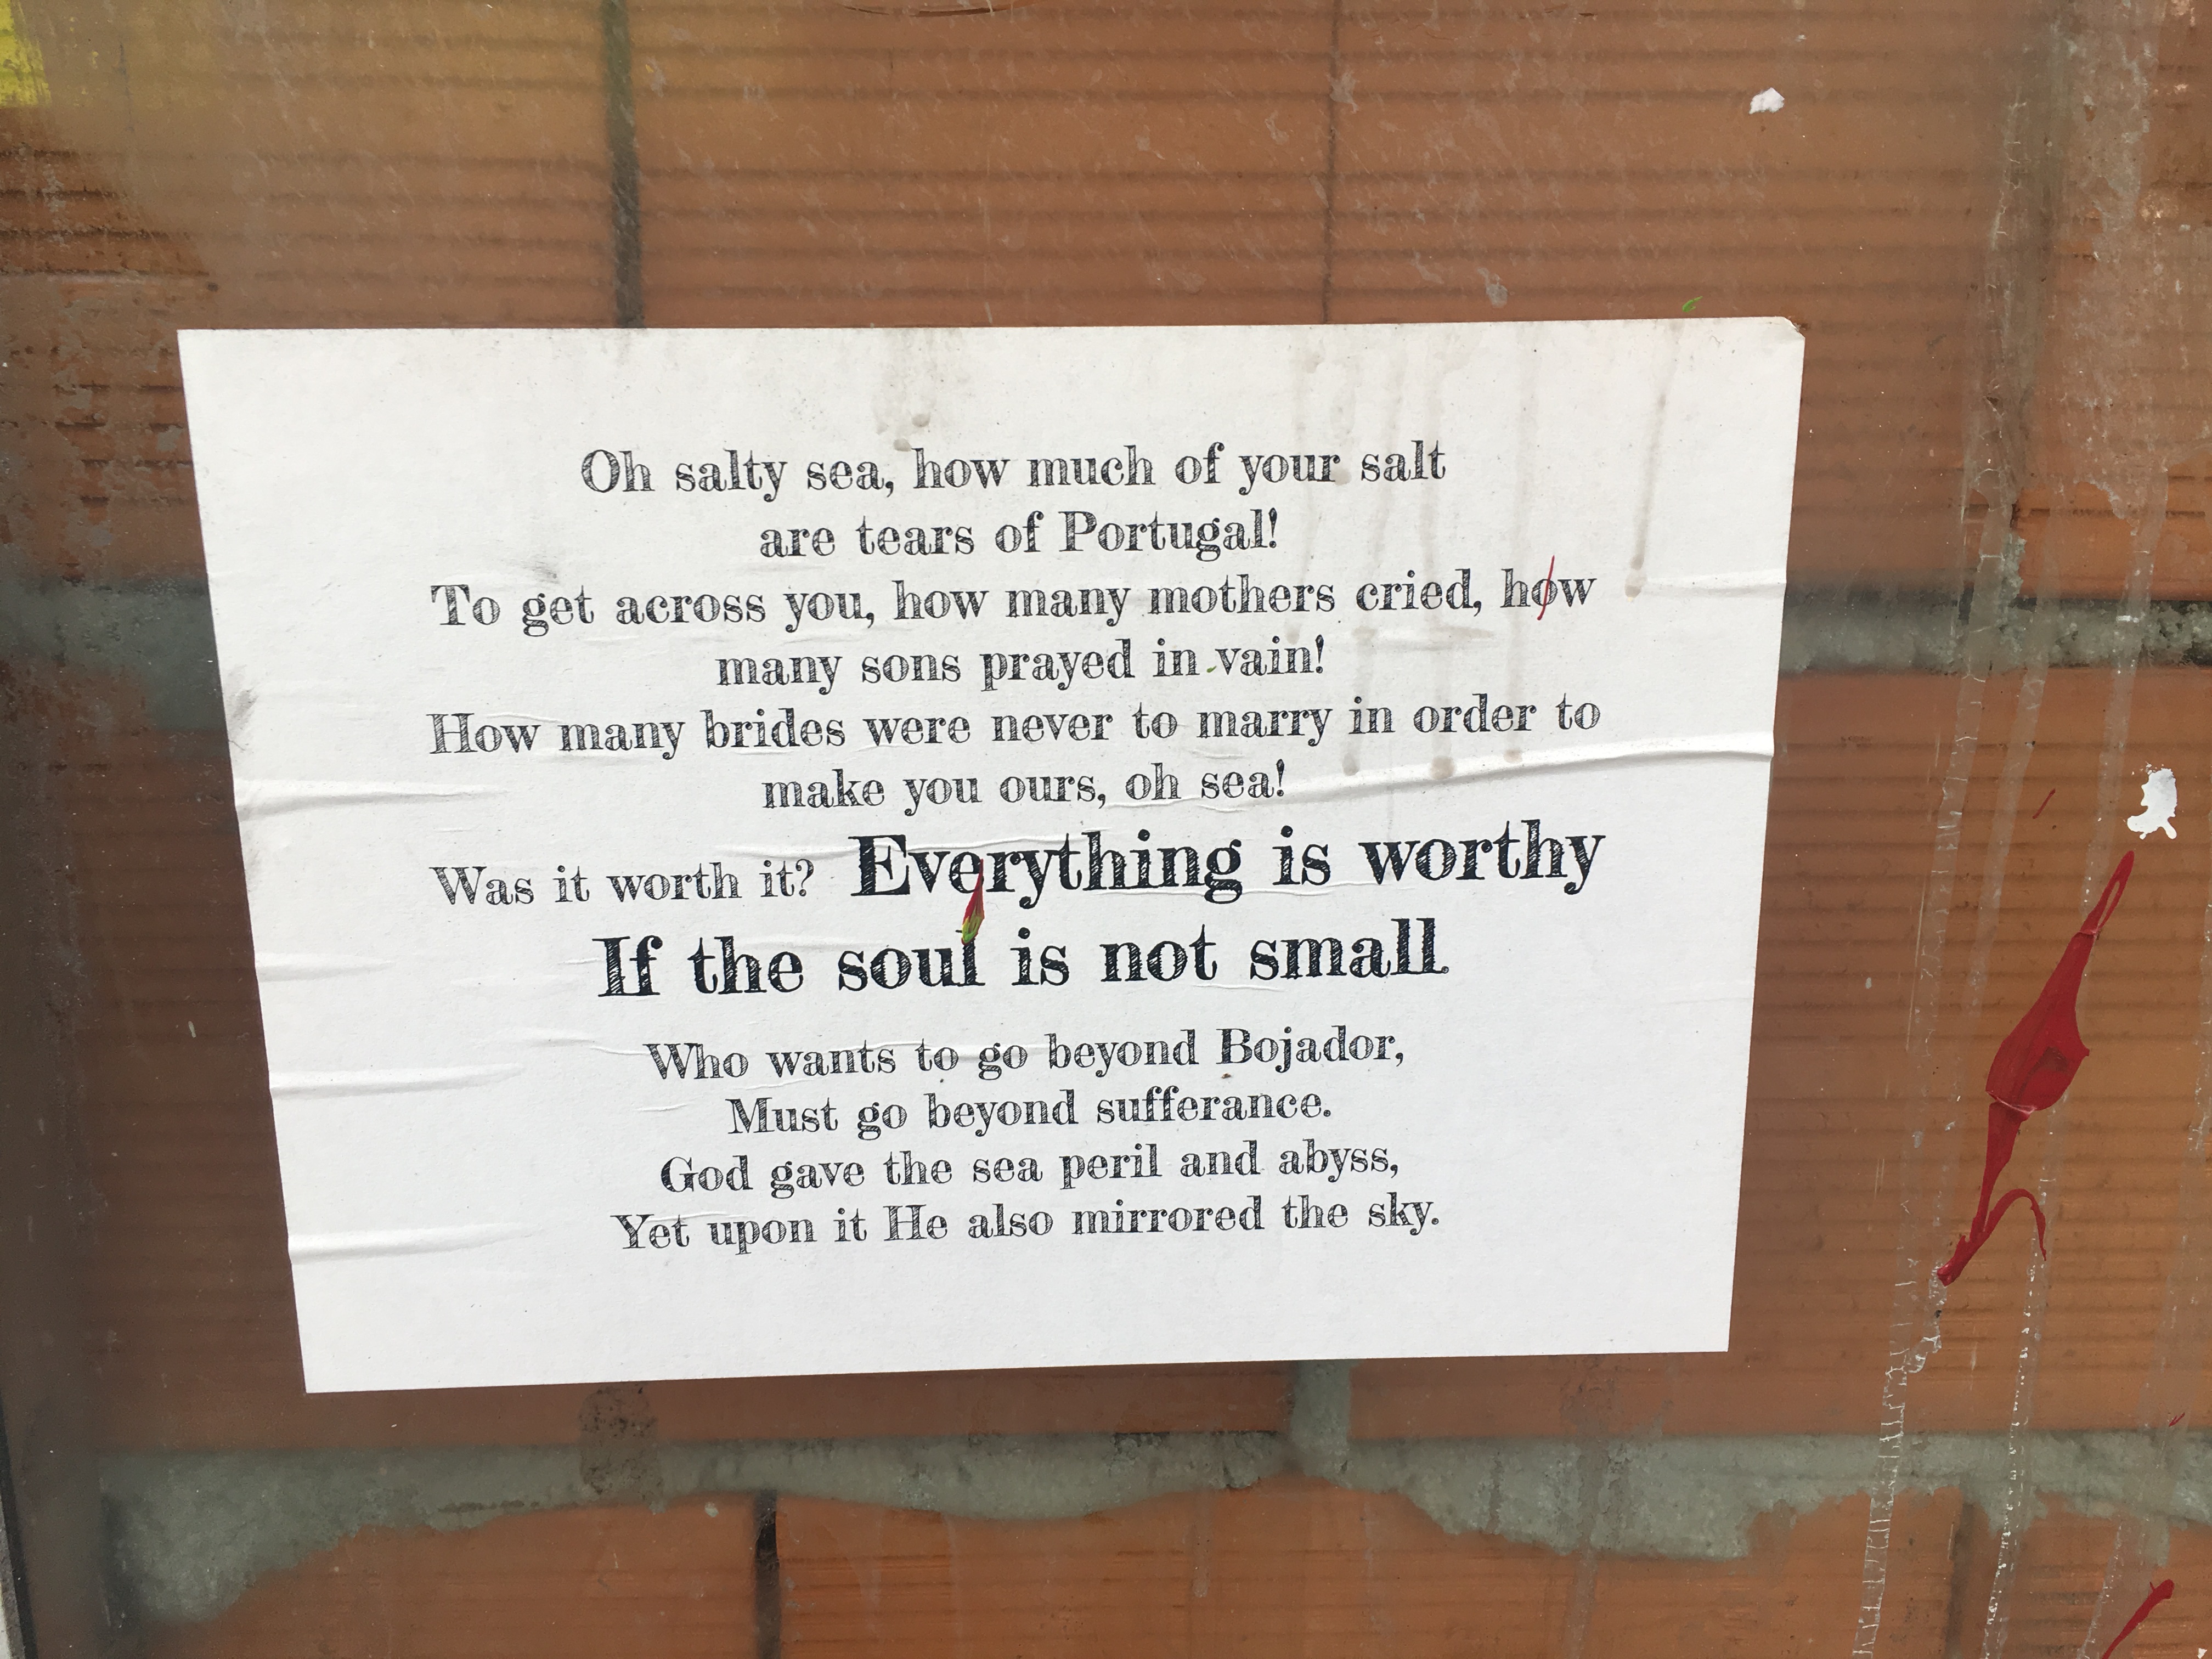 Oh salty sea, how much of your salt
are tears of Portugal!
To get across you, how many mothers cried, how
many sons prayed in vain!
How many brides were never to marry in order to
make you ours, oh sea!
Was it worth it? Everything is worthy
If the soul is not small
Who wants to go beyond Bojador,
Must go beyond sufferance.
God gave the sea peril and abyss,
Yet upon it He also mirrored the sky.